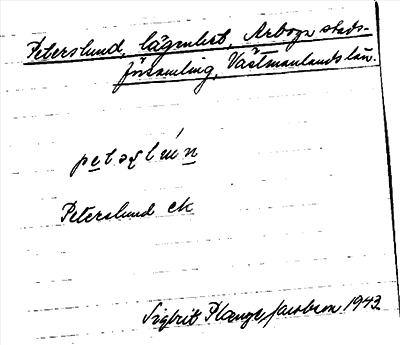 Peterslund, lägenhet, Arboga stads-
församling, Västmanlands län.
Peterslund ek
Sigbrit Plænge Jacobson 1943